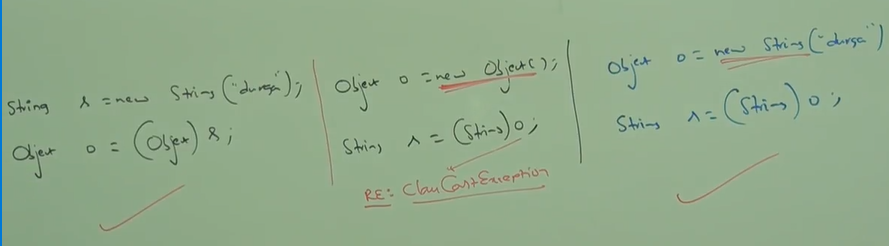 String s = new String("durga");
Object o = (Object) s;
Object o = new Object();
String s = (String) o;
RE: ClassCastException
Object o = new String("durga")
String s = (String) o;